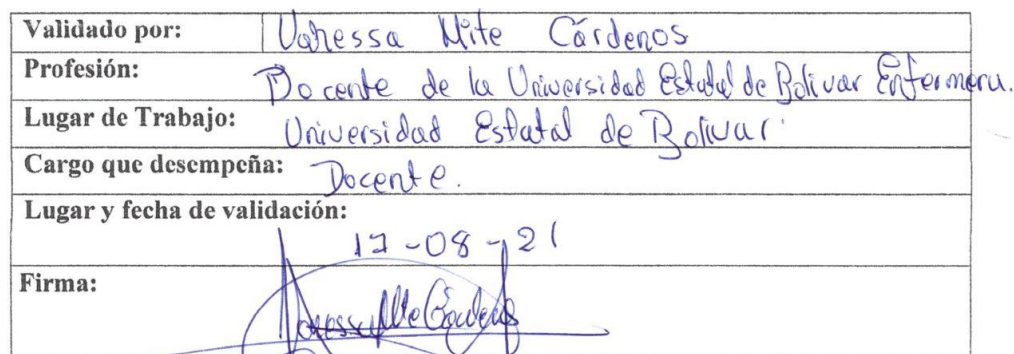 Validado por: Vanessa Mite Cárdenas
Profesión: Docente de la Universidad Estatal de Bolivar Enfermera.
Lugar de Trabajo: Universidad Estatal de Bolivar
Cargo que desempeña: Docente.
Lugar y fecha de validación:
17-08-21
Firma:
Vanessa Mite Cárdenas